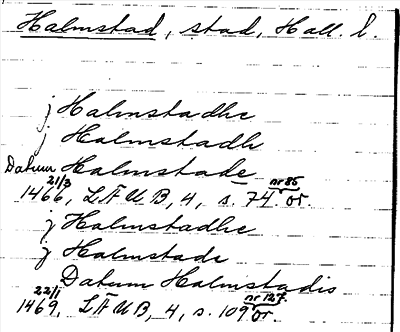 Halmstad, stad, Hall. l.
j Halmstadhe
j Halmstadh
Datum Halmstade
1466 21/3, LÄUB, 4, s. 74 nr 85 or.
j Halmstadhe
j Halmstade
Datum Halmstadis
1469 22/1, LÄUB, 4, s. 109 nr 127 or.